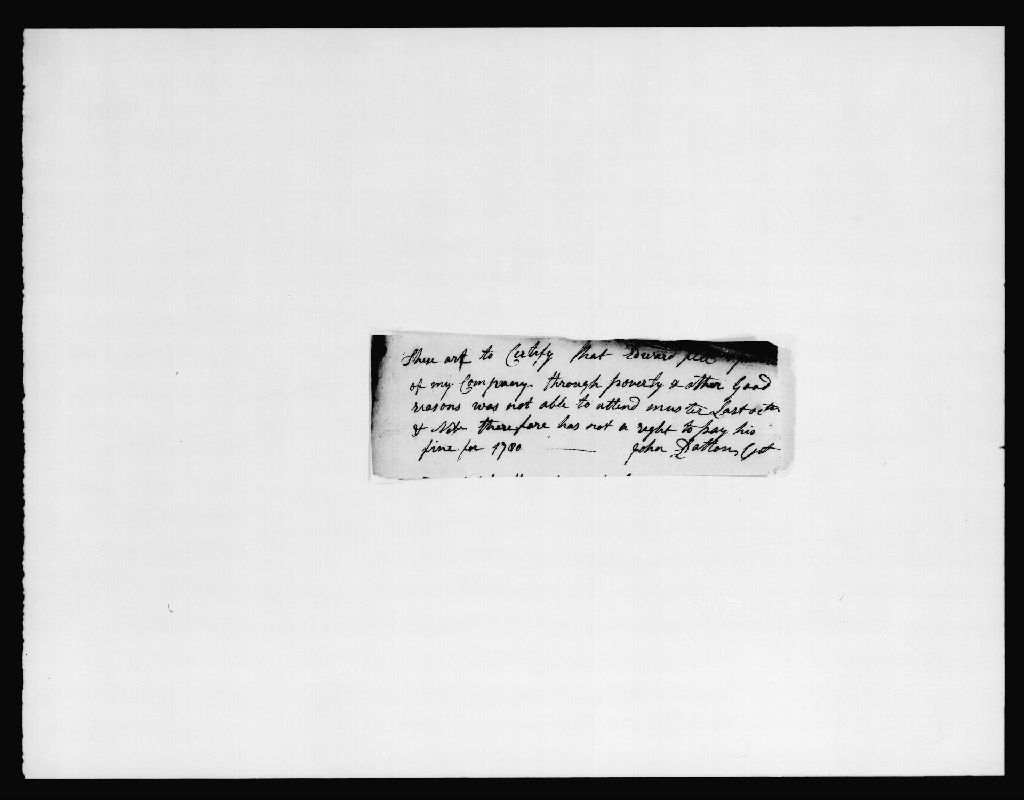 These are to Certify that Edward
of my Company through poverty & other Good
reasons was not able to attend muster Last octr
& Nob therefore has not a right to pay his
fine for 1780 John Cpt